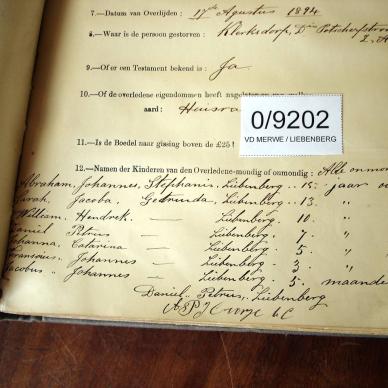 7.—Datum van Overlijden : 17de Augustus 1894
8.—Waar is de persoon gestorven : Klerksdorp, Potchefstroom
9.—Of er een Testament bekend is : Ja
10.—Of de overledene eigendommen heeft
aard : Huisra
0/9202
VD MERWE / LIEBENBERG
11.—Is de Boedel naar gissing boven de £25 !
12.—Namen der Kinderen van den Overledene-mondig of onmondig : Alle onmon
Abraham, Johannes, Stephanis, Liebenberg 15 jaar
Sarah, Jacoba, Liebenberg 13 "
Willeam Hendrek — Liebenberg 10 "
Daniel Petrus — Liebenberg 7 "
Johanna Catarina — Liebenberg 5 "
Johannes — Liebenberg 3 "
Jacobus Johannes — Liebenberg 5 maande
Daniel Petrus, Liebenberg